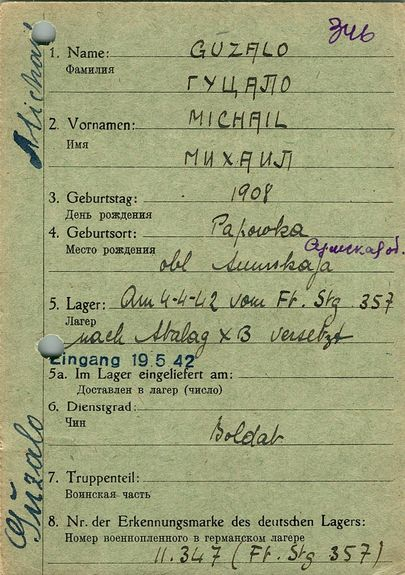 346
1. Name: GUZALO
Фамилия
ГУЦАЛО
2. Vornamen: MICHAIL
Имя
МИХАИЛ
3. Geburtstag: 1908
День рождения
4. Geburtsort: Papowka
Место рождения Сумская об.
obl Sumskaja
5. Lager: Am 4-4-42 vom Ft. Stg 357
Лагерь
nach Stalag XB versetzt
Eingang 19.5.42
5a. Im Lager eingeliefert am:
Доставлен в лагер (число)
6. Dienstgrad:
Чин
Soldat
7. Truppenteil:
Воинская часть
8. Nr. der Erkennungsmarke des deutschen Lagers:
Номер военнопленного в германском лагере
11.347 (Ft. Stg 357)
Guzalo Michail